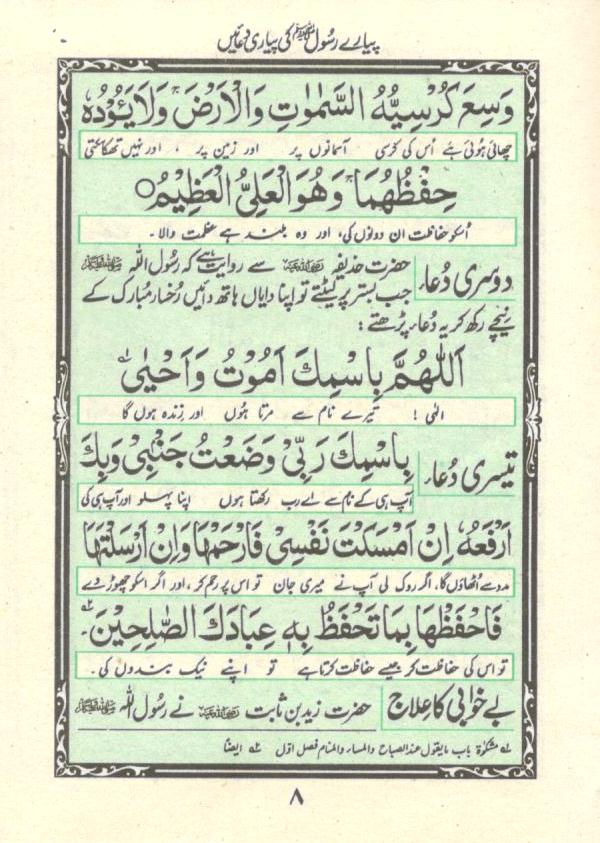 پیارے رسول ﷺ کی پیاری دعائیں
وَسِعَ كُرْسِيُّهُ السَّمٰوٰتِ وَالْاَرْضَ ۚ وَلَا يَـُٔوْدُهٗ
چھائی ہوئی ہے اُس کی کرسی آسمانوں پر اور زمین پر ، اور نہیں تھکا سکتی
حِفْظُهُمَا ۚ وَهُوَ الْعَلِيُّ الْعَظِيْمُ ○
اُسکو حفاظت ان دونوں کی، اور وہ بلند ہے عظمت والا۔
دوسری دُعاء حضرت حذیفہ رضی اللہ عنہ سے روایت ہے کہ رسول اللہ ﷺ
جب بستر پر لیٹتے تو اپنا دایاں ہاتھ دائیں رُخسار مُبارک کے
نیچے رکھ کر یہ دُعاء پڑھتے :
اَللّٰهُمَّ بِاسْمِكَ اَمُوْتُ وَاَحْيٰى ؎۱
الٰہی ! تیرے نام سے مرتا ہُوں اور زِندہ ہوں گا
تیسری دُعاء بِاسْمِكَ رَبِّيْ وَضَعْتُ جَنْبِيْ وَبِكَ
آپ ہی کے نام سے اے رب رکھتا ہوں اپنا پہلو اور آپ ہی کی
اَرْفَعُهٗ اِنْ اَمْسَكْتَ نَفْسِيْ فَارْحَمْهَا وَاِنْ اَرْسَلْتَهَا
مدد سے اُٹھاؤں گا، اگر روک لی آپ نے میری جان تو اس پر رحم کر ، اور اگر اسکو چھوڑ دے
فَاحْفَظْهَا بِمَا تَحْفَظُ بِهٖ عِبَادَكَ الصّٰلِحِيْنَ ۔ ؎۲
تو اس کی حفاظت کر جیسے حفاظت کرتا ہے تو اپنے نیک بندوں کی۔
بے خوابی کا علاج حضرت زید بن ثابت رضی اللہ عنہ نے رسول اللہ ﷺ
؎۱ مشکوٰۃ باب ما یقول عند الصباح والمساء والمنام فصل اوّل ؎۲ ایضاً
۸